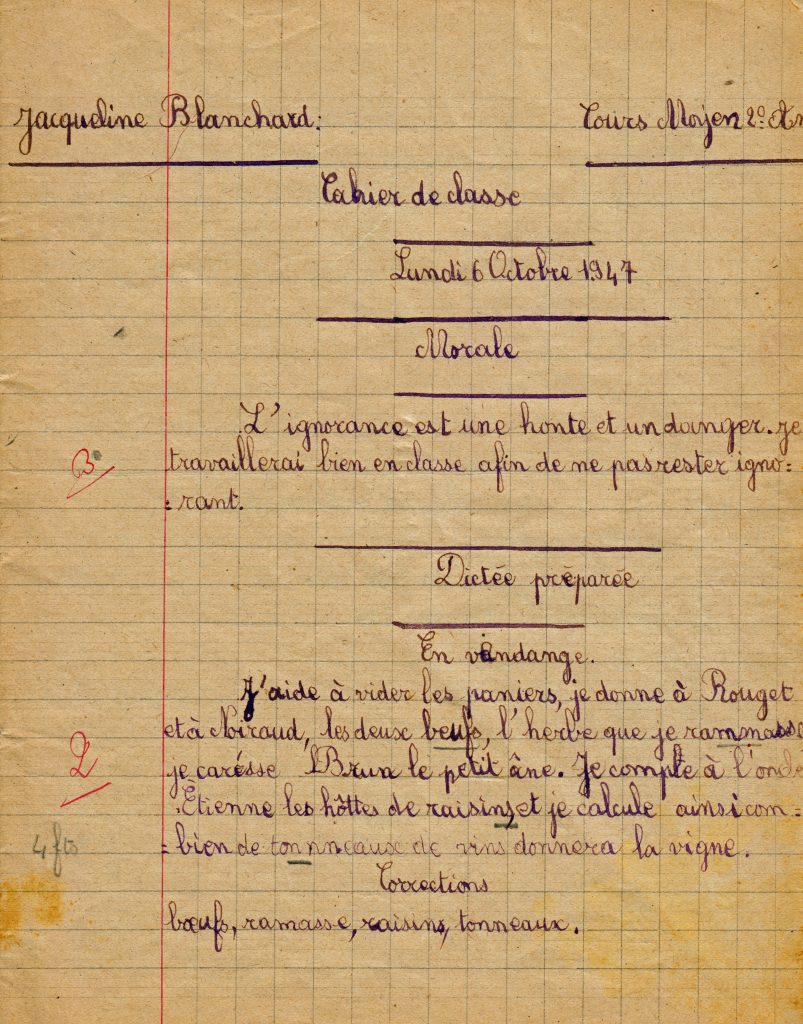 Jacqueline Blanchard: Cours Moyen 2º An
Cahier de classe
Lundi 6 Octobre 1947
Morale
L'ignorance est une honte et un danger. Je
B travaillerai bien en classe afin de ne pas rester igno=
=rant.
Dictée préparée
En vendange.
J'aide à vider les paniers, je donne à Rouget
et à Noiraud, les deux beufs, l'herbe que je rammasse
je carésse Brun le petit âne. Je compte à l'oncle
Étienne les hôttes de raisins et je calcule ainsi com=
4 fts =bien de tonnneaux de vins donnera la vigne.
Corrections
bœufs, ramasse, raisins, tonneaux.